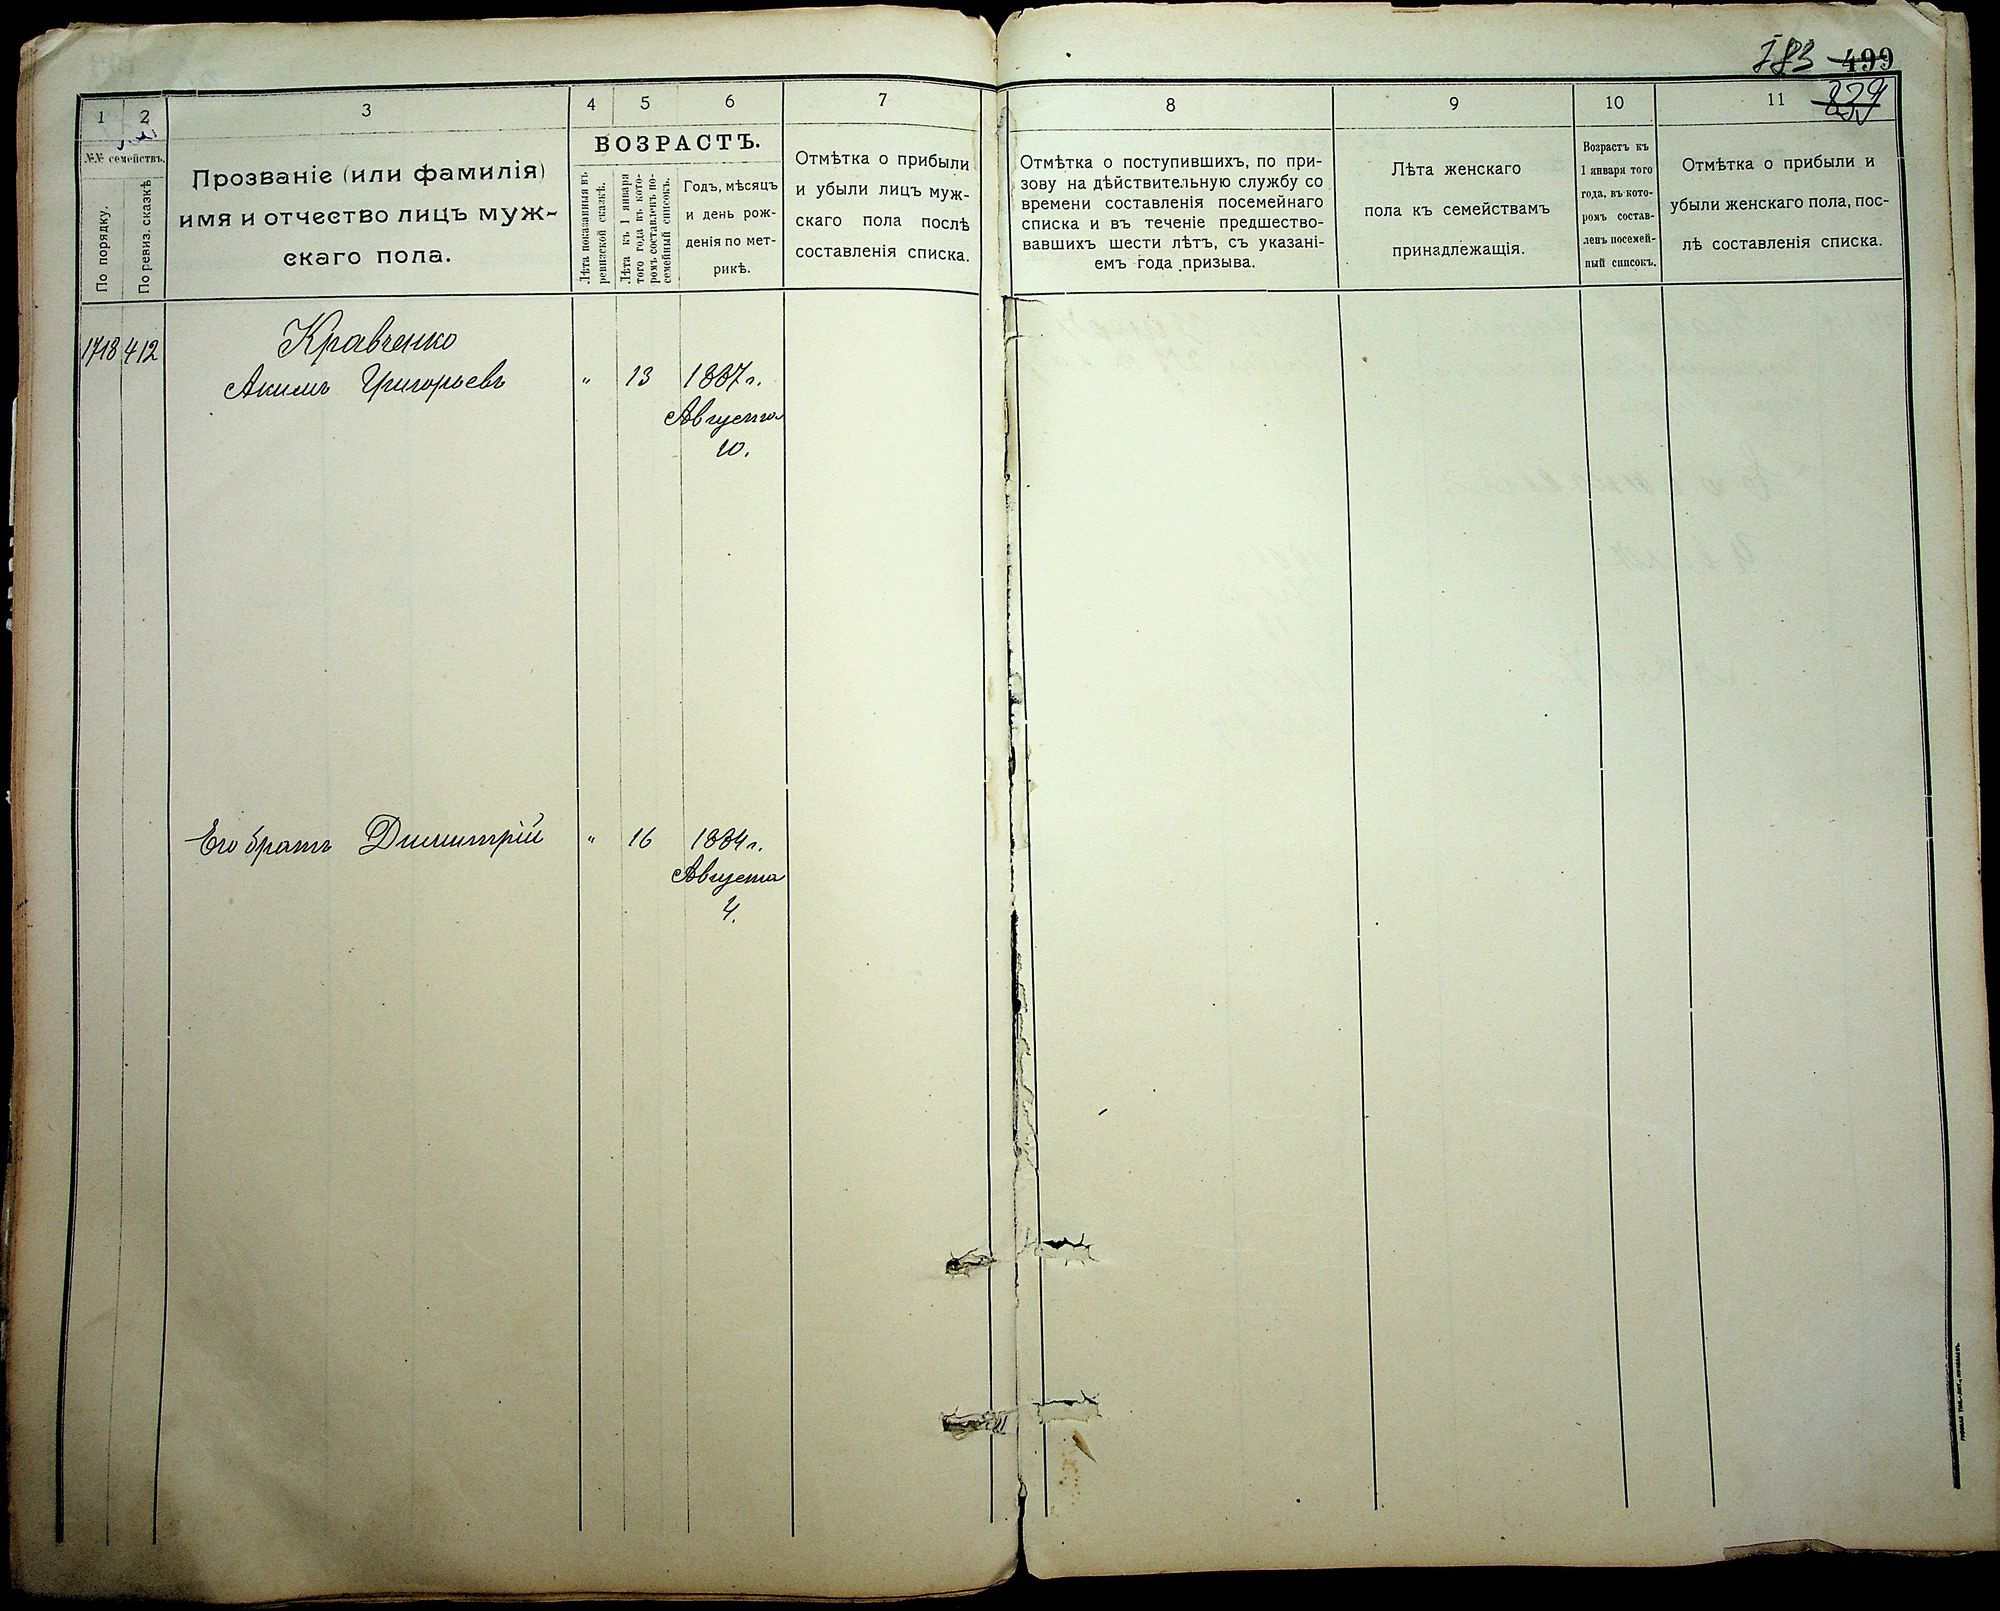 783 499
839
1
2
3
4
5
6
7
8
9
10
11
№№ семействъ.
По порядку.
По ревиз. сказкѣ
Прозваніе (или фамилія)
имя и отчество лицъ муж-
скаго пола.
ВОЗРАСТЪ.
Лѣта показанныя въ
ревизской сказкѣ.
Лѣта къ 1 января
того года въ кото-
ромъ составленъ по-
семейный списокъ.
Годъ, мѣсяцъ
и день рож-
денія по мет-
рикѣ.
Отмѣтка о прибыли
и убыли лицъ муж-
скаго пола послѣ
составленія списка.
Отмѣтка о поступившихъ, по при-
зову на дѣйствительную службу со
времени составленія посемейнаго
списка и въ теченіе предшество-
вавшихъ шести лѣтъ, съ указані-
емъ года призыва.
Лѣта женскаго
пола къ семействамъ
принадлежащія.
Возрастъ къ
1 января того
года, въ кото-
ромъ состав-
ленъ посемей-
ный списокъ.
Отмѣтка о прибыли и
убыли женскаго пола, пос-
лѣ составленія списка.
1718 412 Кравченко
Акимъ Григорьевъ " 13 1887 г.
Августа
10.
Его братъ Димитрій " 16 1884 г.
Августа
4.